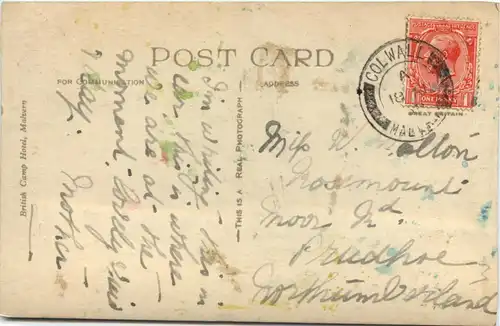 POST CARD
FOR COMMUNICATION
ADDRESS
British Camp Hotel, Malvern
THIS IS A REAL PHOTOGRAPH
I'm writing this in
car. This is where
we are at the
moment. Lovely
today.
Mother
COLWALL
MALVERN
ONE PENNY
GREAT BRITAIN
Miss W. Malton
Rosemount
Moor Rd
Prudhoe
Northumberland